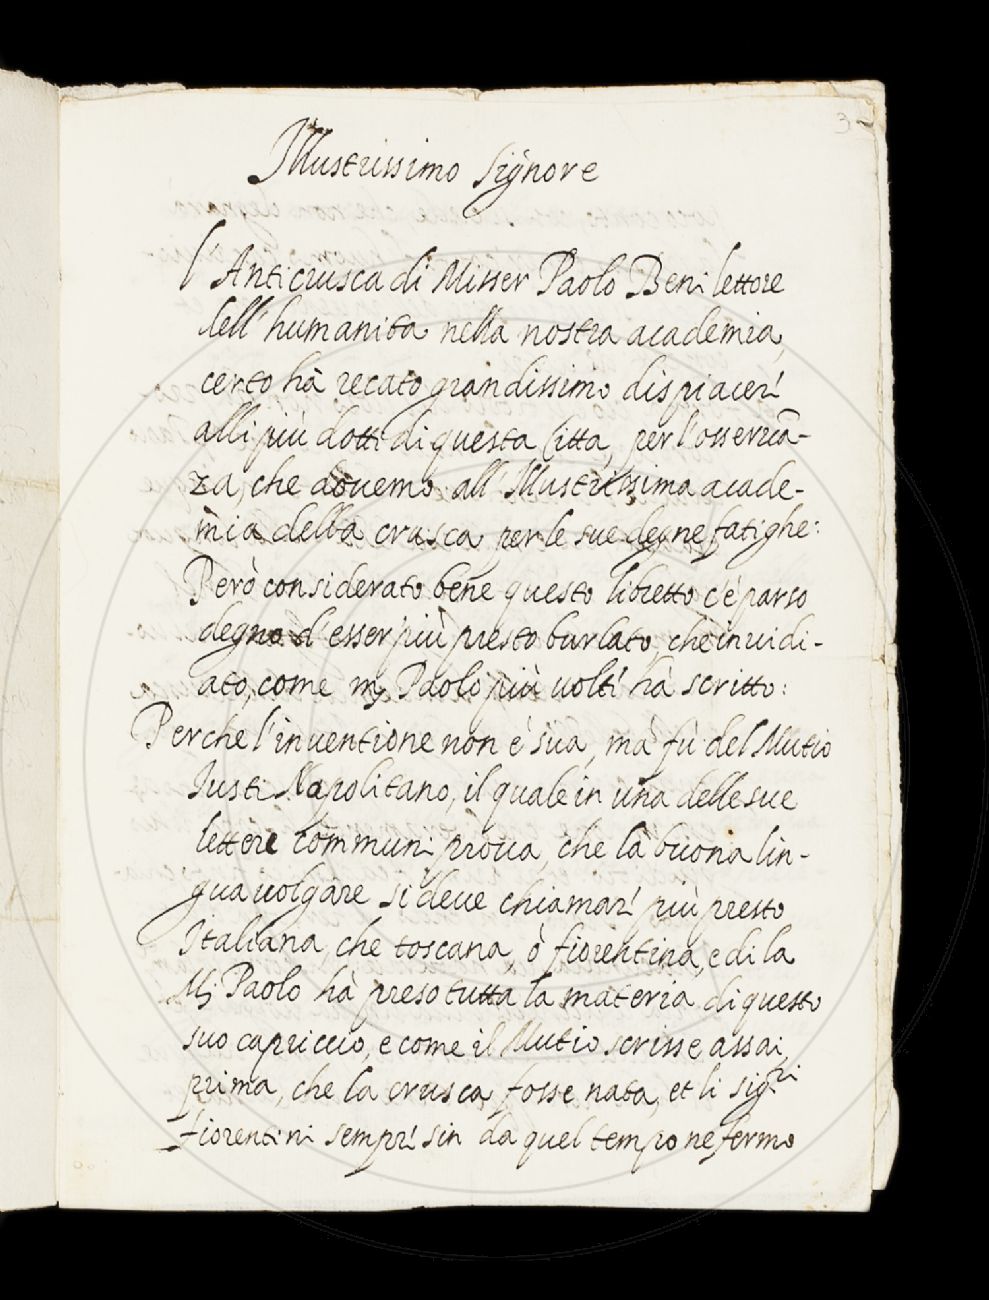 3
Illustrissimo Signore
l'Anticrusca di Misser Paolo Beni lettore
dell'humanita nella nostra academia,
certo hà recato grandissimo dispiacerí
alli più dotti di questa Citta, per l'osseruā-
za, che abuemo all'Illustrissima acade-
mia della crusca per le sue degne fatighe:
Però considerato bene questo libretto c'é parso
degno d'esser più presto burlato, che inuidi-
ato, come mj Paolo più uoltí hà scritto:
Perche l'inuentione non é sua, mà fù del Mutio
Iusti Napolitano, il quale in una delle sue
lettere communi proua, che la buona lin-
gua uolgare si deue chiamarí più presto
Italiana, che toscana, ò fiorentina, e di la
Mj Paolo hà preso tutta la materia di questo
suo capriccio, e come il Mutio scrisse assai
prima, che la crusca fosse nata, et li sigri
fiorentini semprí sin da quel tempo ne fermo